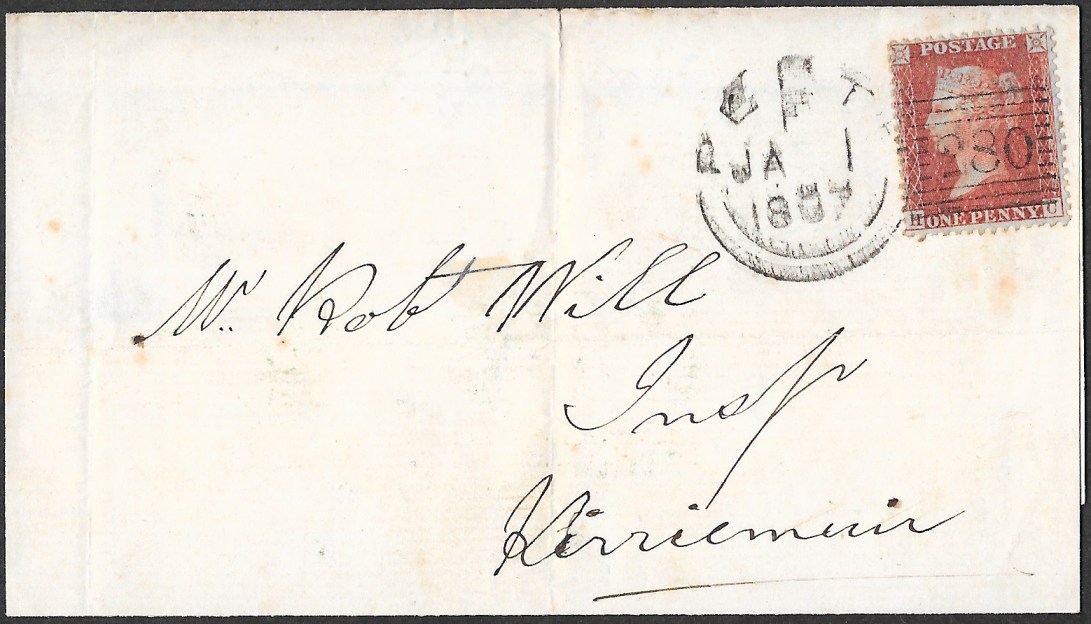 POSTAGE
PERTH
JA 1
280
H ONE PENNY U
Mr. Robt Will
Insp
Kirriemuir